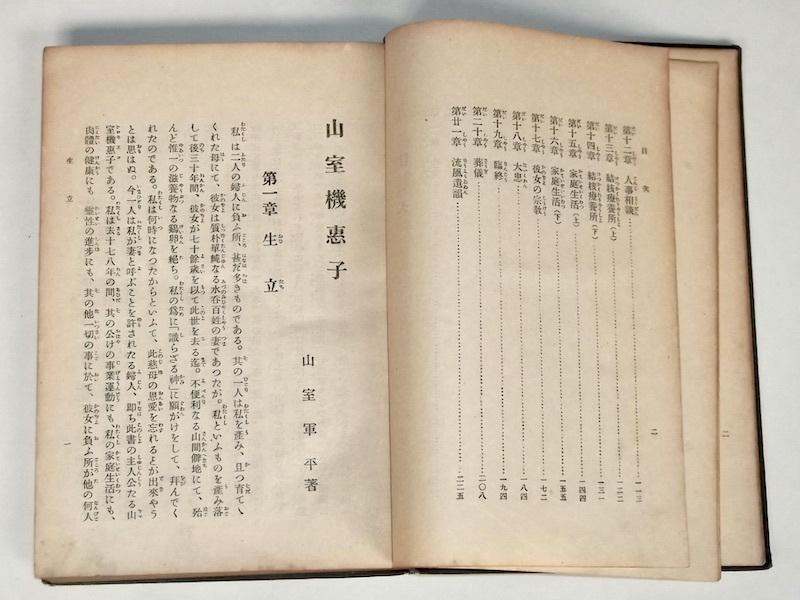 目次
第十二章 人事相談 一一三
第十三章 結核療養所(上) 一二二
第十四章 結核療養所(下) 一三一
第十五章 家庭生活(上) 一四四
第十六章 家庭生活(下) 一五五
第十七章 彼女の宗教 一七二
第十八章 大患 一八四
第十九章 臨終 一九四
第二十章 葬儀 二〇八
第廿一章 流風遺韻 二二五
二
二
山室機惠子
山室軍平著
第一章 生立
私は二人の婦人に負ふ所、甚だ多きものである。其の一人は私を產み、且つ育てゝ
くれた母にて、彼女は質朴單純なる水呑百姓の妻であつたが。私といふものを產み落
して後三十年間、彼女が七十餘歲を以て此世を去る迄。不便利なる山間僻地にて、殆
んど惟一の滋養物なる鷄卵を絕ち。私の爲に「識らざる神」に願がけをして、拜んでく
れたのである。私は何時になつたからといふて、此慈母の恩愛を忘れるとが出來やう
とは思はぬ。今一人は私が妻と呼ぶことを許されたる婦人、卽ち此書の主人公たる山
室機惠子である。私は去十七八年の間、其の公けの事業運動にも、私の家庭生活にも、
肉體の健康にも、靈性の進步にも、其の他一切の事に於て、彼女に負ふ所が他の何人
生立
一